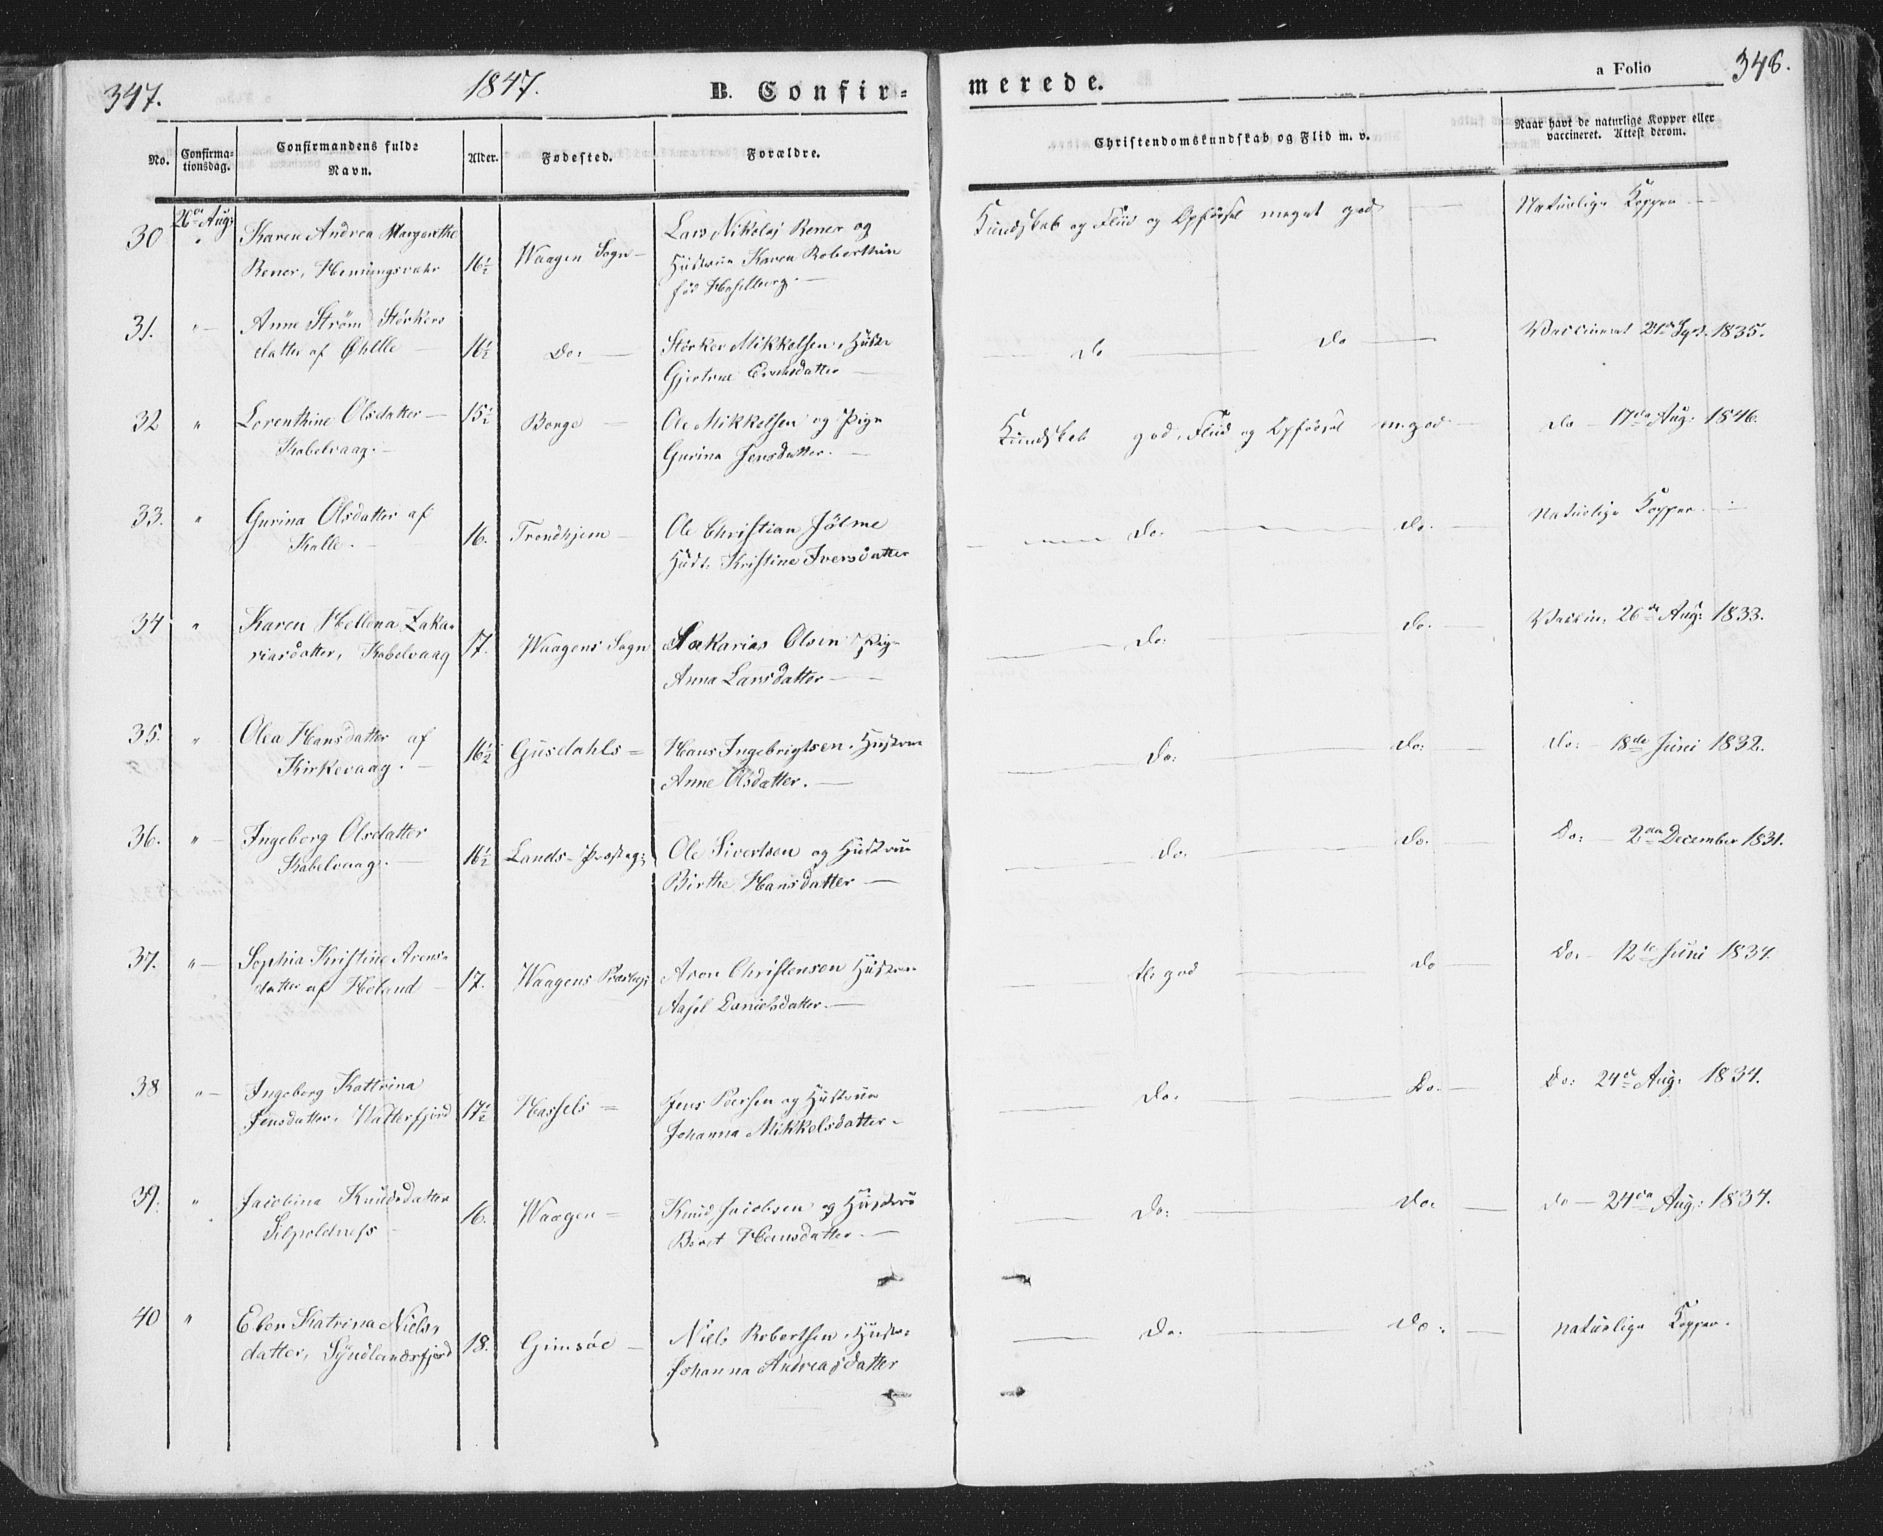 347.
1847.
B. Confir-
merede.
a Folio
346.
No.
Confirma-
tionsdag.
Confirmandens fulde
Navn.
Alder.
Fødested.
Forældre.
Christendomskundskab og Flid m. v.
Naar havt de naturlige Kopper eller
vaccineret. Attest derom.
30
26de Aug:
Karen Andrea Margrethe
Rener, Henningsvahr
16½
Waagen Sogn
Lars Nikolaj Rener og
Hustrue Karen Roberthine
fød Hasselberg.
Kundskab og Fliid og Opførsel meget god
Naturlige Kopper
31.
"
Anne Strøm Størkers
datter af Øhlle
16½
Do:
Størker Mikkelsen, Hustr
Gjertrue
do do
Vaccineret 21de Sept. 1835.
32
"
Lorenthine Olsdatter
Kabelvaag.
15½
Borge
Ole Mikkelsen og Pige
Gurina Jensdatter.
Kundskab god, Fliid og Opførsel m. god
do 17de Aug: 1846.
33.
"
Gurina Olsdatter af
Kalle.
16.
Trondhjem
Ole Christian Jølme
Hust: Kristine Iversdatter
do. do.
Naturlige Kopper.
34
"
Karen Hellena Zaka-
riasdatter, Kabelvaag
17.
Waagens Sogn
Zakarias Olsen Pig
Anna Larsdatter
do. do.
Vaccin. 26de Aug: 1833.
35.
"
Olea Hansdatter af
Kirkevaag.
16½
Gusdahls
Hans Ingebrigtsen, Hustrue
Anne Olsdatter.
do: do:
do: 18de Juni 1832.
36.
"
Ingeborg Olsdatter
Kabelvaag.
16½
Lands-Præsteg:
Ole Sivertsen og Hustrue
Birthe Hansdatter
do: do.
Do: 2den December 1831.
37.
"
Sophia Kristine Arens-
datter af Høland
17.
Waagens Præsteg:
Aron Christensen Hustrue
Aasel Danielsdatter.
tl: god do
Do. 12te Juni 1834.
38
"
Ingeborg Kattrina
Jensdatter, Watterfjord
17½
Hassels
Jens Peersen og Hustrue
Johanna Mikkelsdatter.
do. do.
Do: 24de Aug: 1834.
39.
"
Jacobina Knudsdatter
16.
Waagen
Knud Jacobsen og Hustrue
Beret Hansdatter
do: do.
do 24de Aug: 1834.
40
"
Elen Katrina Niels-
datter, Syndlandsfjord
18.
Gimsøe
Niels Robertsen, Hustr:
Johanna Andreasdatter
do: do:
Naturlige Kopper.